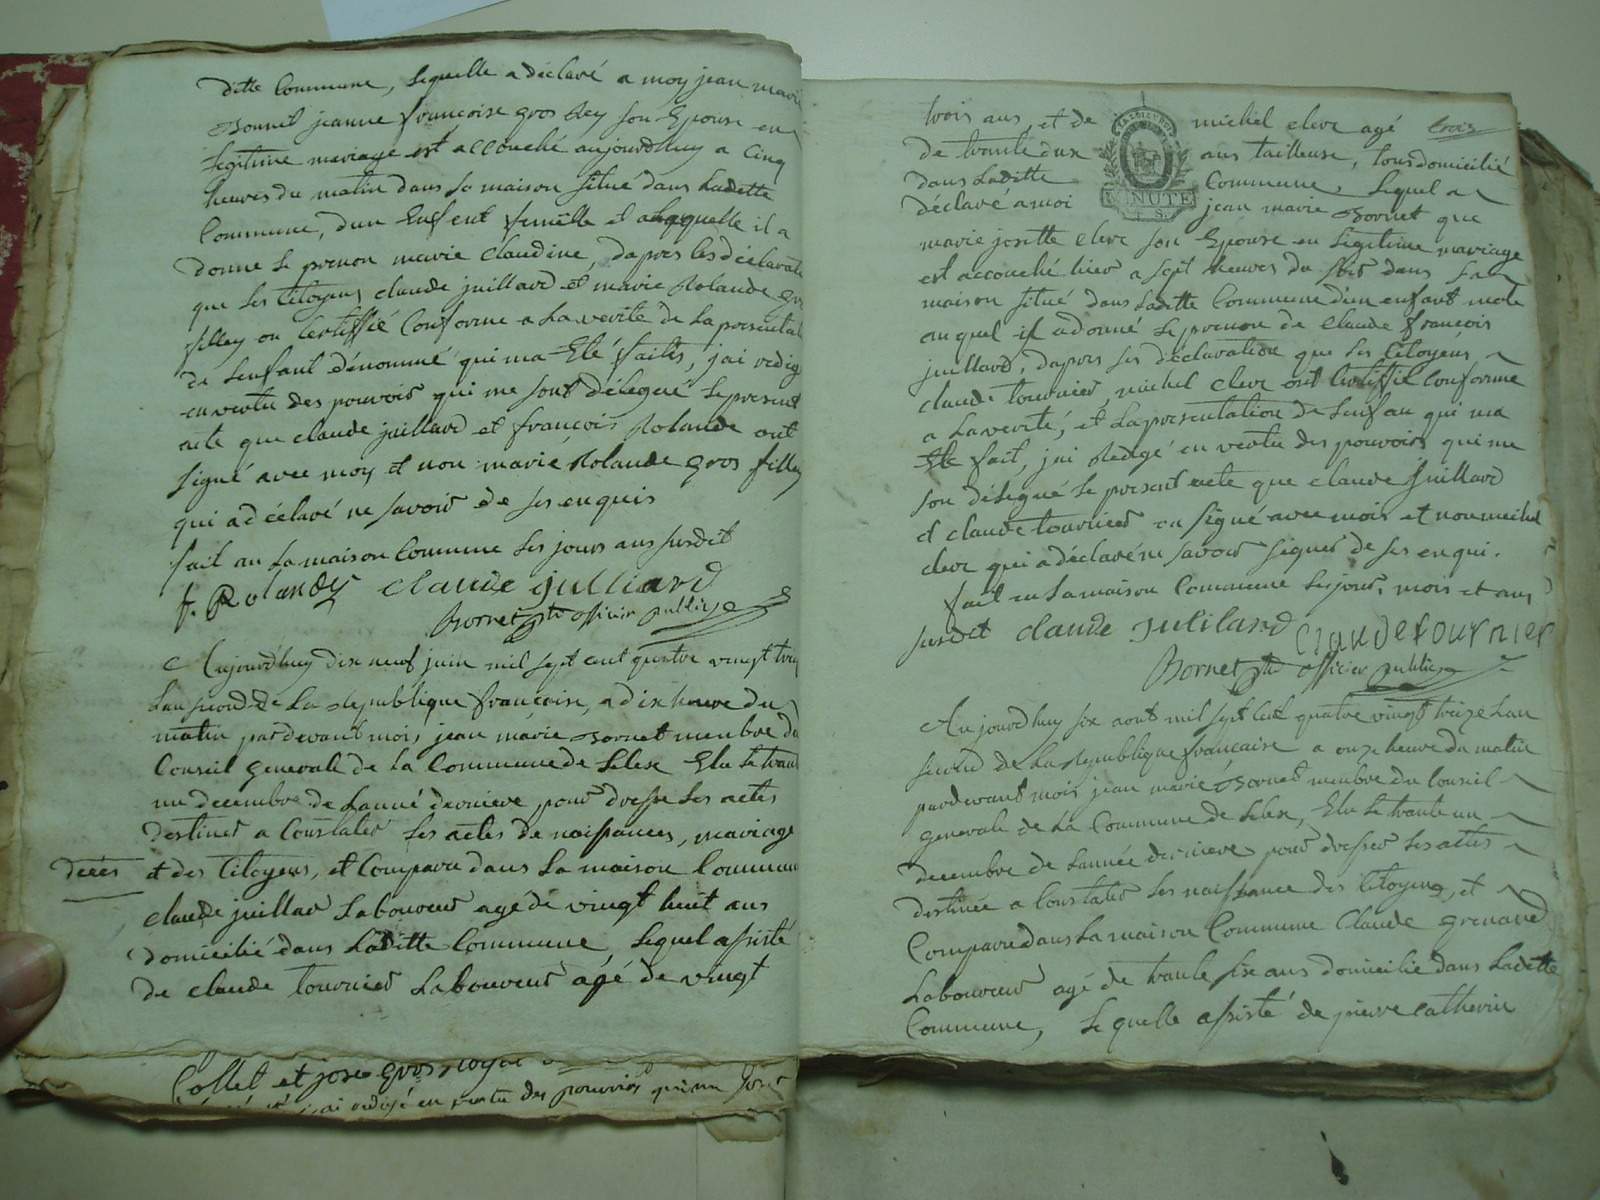 ditte Commune, lequelle a déclaré a moy jean marie
Bornet jeanne françoise gros Rey son Epouse en
legitime mariage est accouché aujourdhuy a Cinq
heures du matin dans sa maison situé dans Laditte
Commune, dun Enfent femelle et alaquelle il a
donné le prenon marie Claudine, dapres les déclaration
que les Citoyens claude juillard et marie Rolande gros
filley on Certiffié Conforme a La verité de La presentation
de lenfant dénommé qui ma Eté faites, j'ai redigé
en vertu des pouvoir qui me sont délegué le present
acte que claude juillard et françois Rolande ont
signé avec moy et non marie Rolande gros filley
qui a déclavé ne savoir de ses enquis
fait an La maison Commune les jours ans susdit
f. Rolandy claude julliard
Bornet officier public
Aujourdhuy dix neuf juin mil sept cent quatre vingt treize
Lan second de La Republique françoise, a dix heure du
matin pardevant mois jean marie Bornet menbre du
Conseil generale de La Commune de Lelex Elu le trante
un decembre de Lanné derniere pour dresse les actes
destiner a Constater les actes de naissances, mariage
décès et des Citoyens, et Comparu dans La maison Commune
claude juillar Laboureur agé de vingt huit ans
domicilié dans Laditte Commune lequel assisté
de claude tournier Laboureur agé de vingt
Collet et jose gros
j'ai redigé en vertu des pouvoirs qui me sont
trois
trois ans, et de michel clerc agé
de trante deux ans tailleuse, tous domicilié
dans Laditte Commune, Lequel a
déclaré a moi jean marie Bornet que
LA LOI ET LE ROI
MINUTE
marie josette clerc son Epouse en légitime mariage
est accouché hier a sept heures du soir dans sa
maison situé dans Laditte Commune d'un enfant male
auquel il adonné le prenon de claude françois
juillard, dapres les déclaration que les Citoyens
claude tournier, michel clerc ont Certiffié Conforme
a La verité, et La presentation de Lenfan qui ma
Eté fait, j'ai Redigé en vertu des pouvoirs qui me
son délegué le present acte que claude Juillard
et claude tournier on signé avec mois et non michel
clerc qui a déclaré ne savoir signer de ses enqui.
fait en La maison Commune les jour, mois et ans
susdit claude julilard Claude tournier
Bornet officier public
Aujourdhuy six aout mil sept Cent quatre vingt treize Lan
second de La Republique française a onze heure du matin
pardevant mois jean marie Bornet menbre du Conseil
generale de La Commune de Lelex, Elu Le trante un
decembre de Lannée derniere pour dresser les actes
destinée a Constater les naissance des Citoyens, et
Comparu dans La maison Commune Claude grenard
Laboureur agé de trante six ans domicilié dans Laditte
Commune, lequelle assisté de pierre catherin